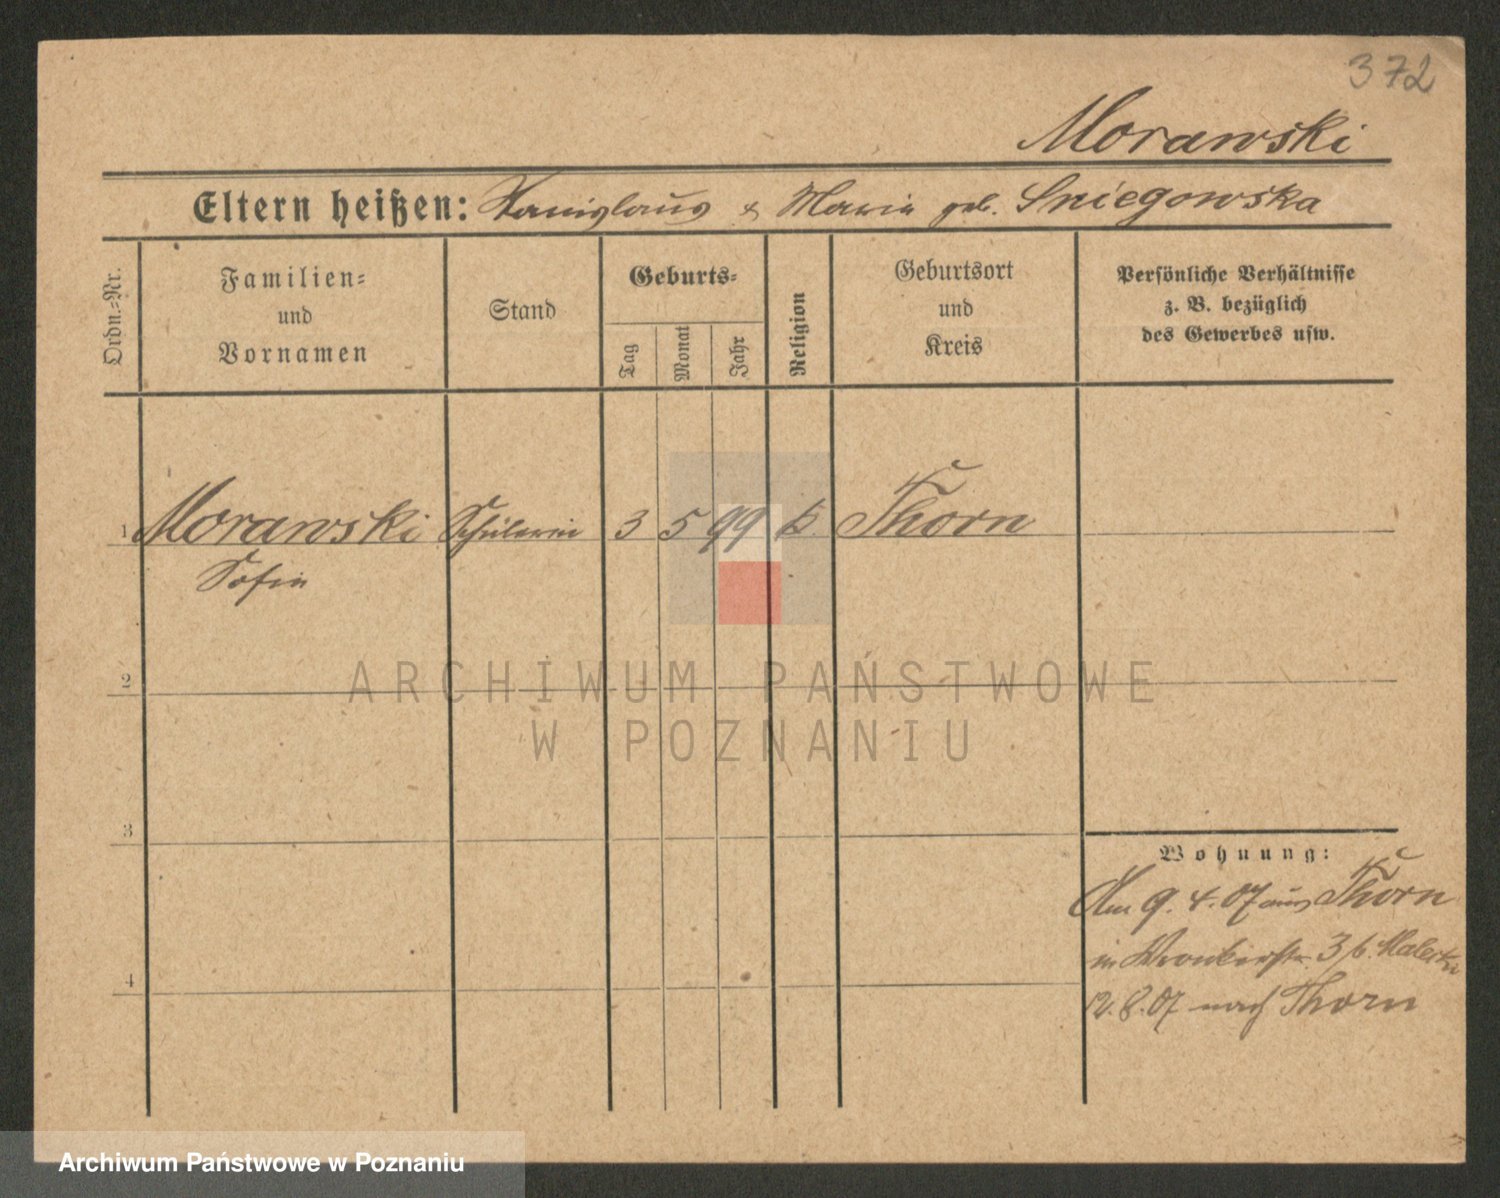 372
Morawski
Eltern heißen: Stanislaus & Marie geb. Sniegowska
Ordn.-Nr.
Familien-
und
Vornamen
Stand
Geburts-
Tag
Monat
Jahr
Religion
Geburtsort
und
Kreis
Persönliche Verhältnisse
z. B. bezüglich
des Gewerbes usw.
1 Morawski Schülerin 3 5 99 k. Thorn
Sofie
2
3
4
Wohnung:
Am 9. 4. 07 aus Thorn
in Wronkerstr. 3 b.
12. 8. 07 nach Thorn
ARCHIWUM PAŃSTWOWE
W POZNANIU
Archiwum Państwowe w Poznaniu